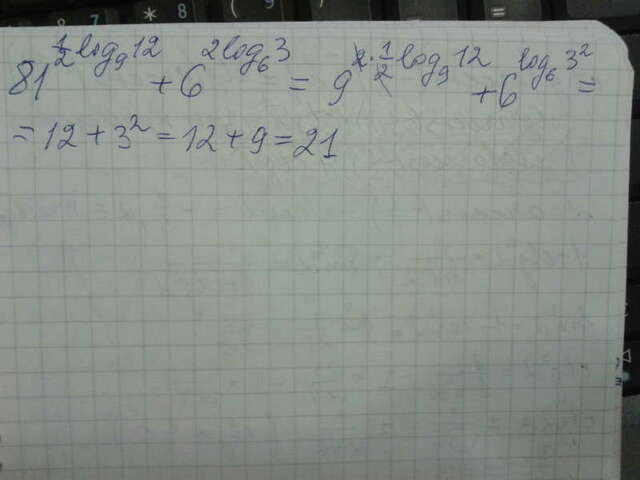 81^{\frac{1}{2}log_9 12} + 6^{2log_6 3} = 9^{2·\frac{1}{2}log_9 12} + 6^{log_6 3^2} =
= 12 + 3^2 = 12 + 9 = 21